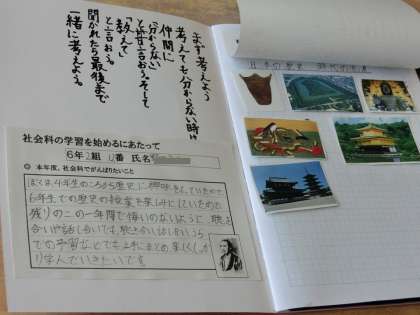 まず考えよう
考えても分からない時は
仲間に
「分からない」
と言おう。そして
「教えて」
と言おう。
聞かれたら最後まで
一緒に考えよう。
社会科の学習を始めるにあたって
6年 組 番 氏名
●本年度、社会科でがんばりたいこと
ぼくは、4年生のころから歴史に興味をもっていたので
6年生での歴史の授業を楽しみにしていたので
残りのこの一年間で悔いのないように、聴き
合いや話し合いでは、
ての予習などでも上手にまとめ楽しくしっか
り学んでいきたいです。
日本の歴史